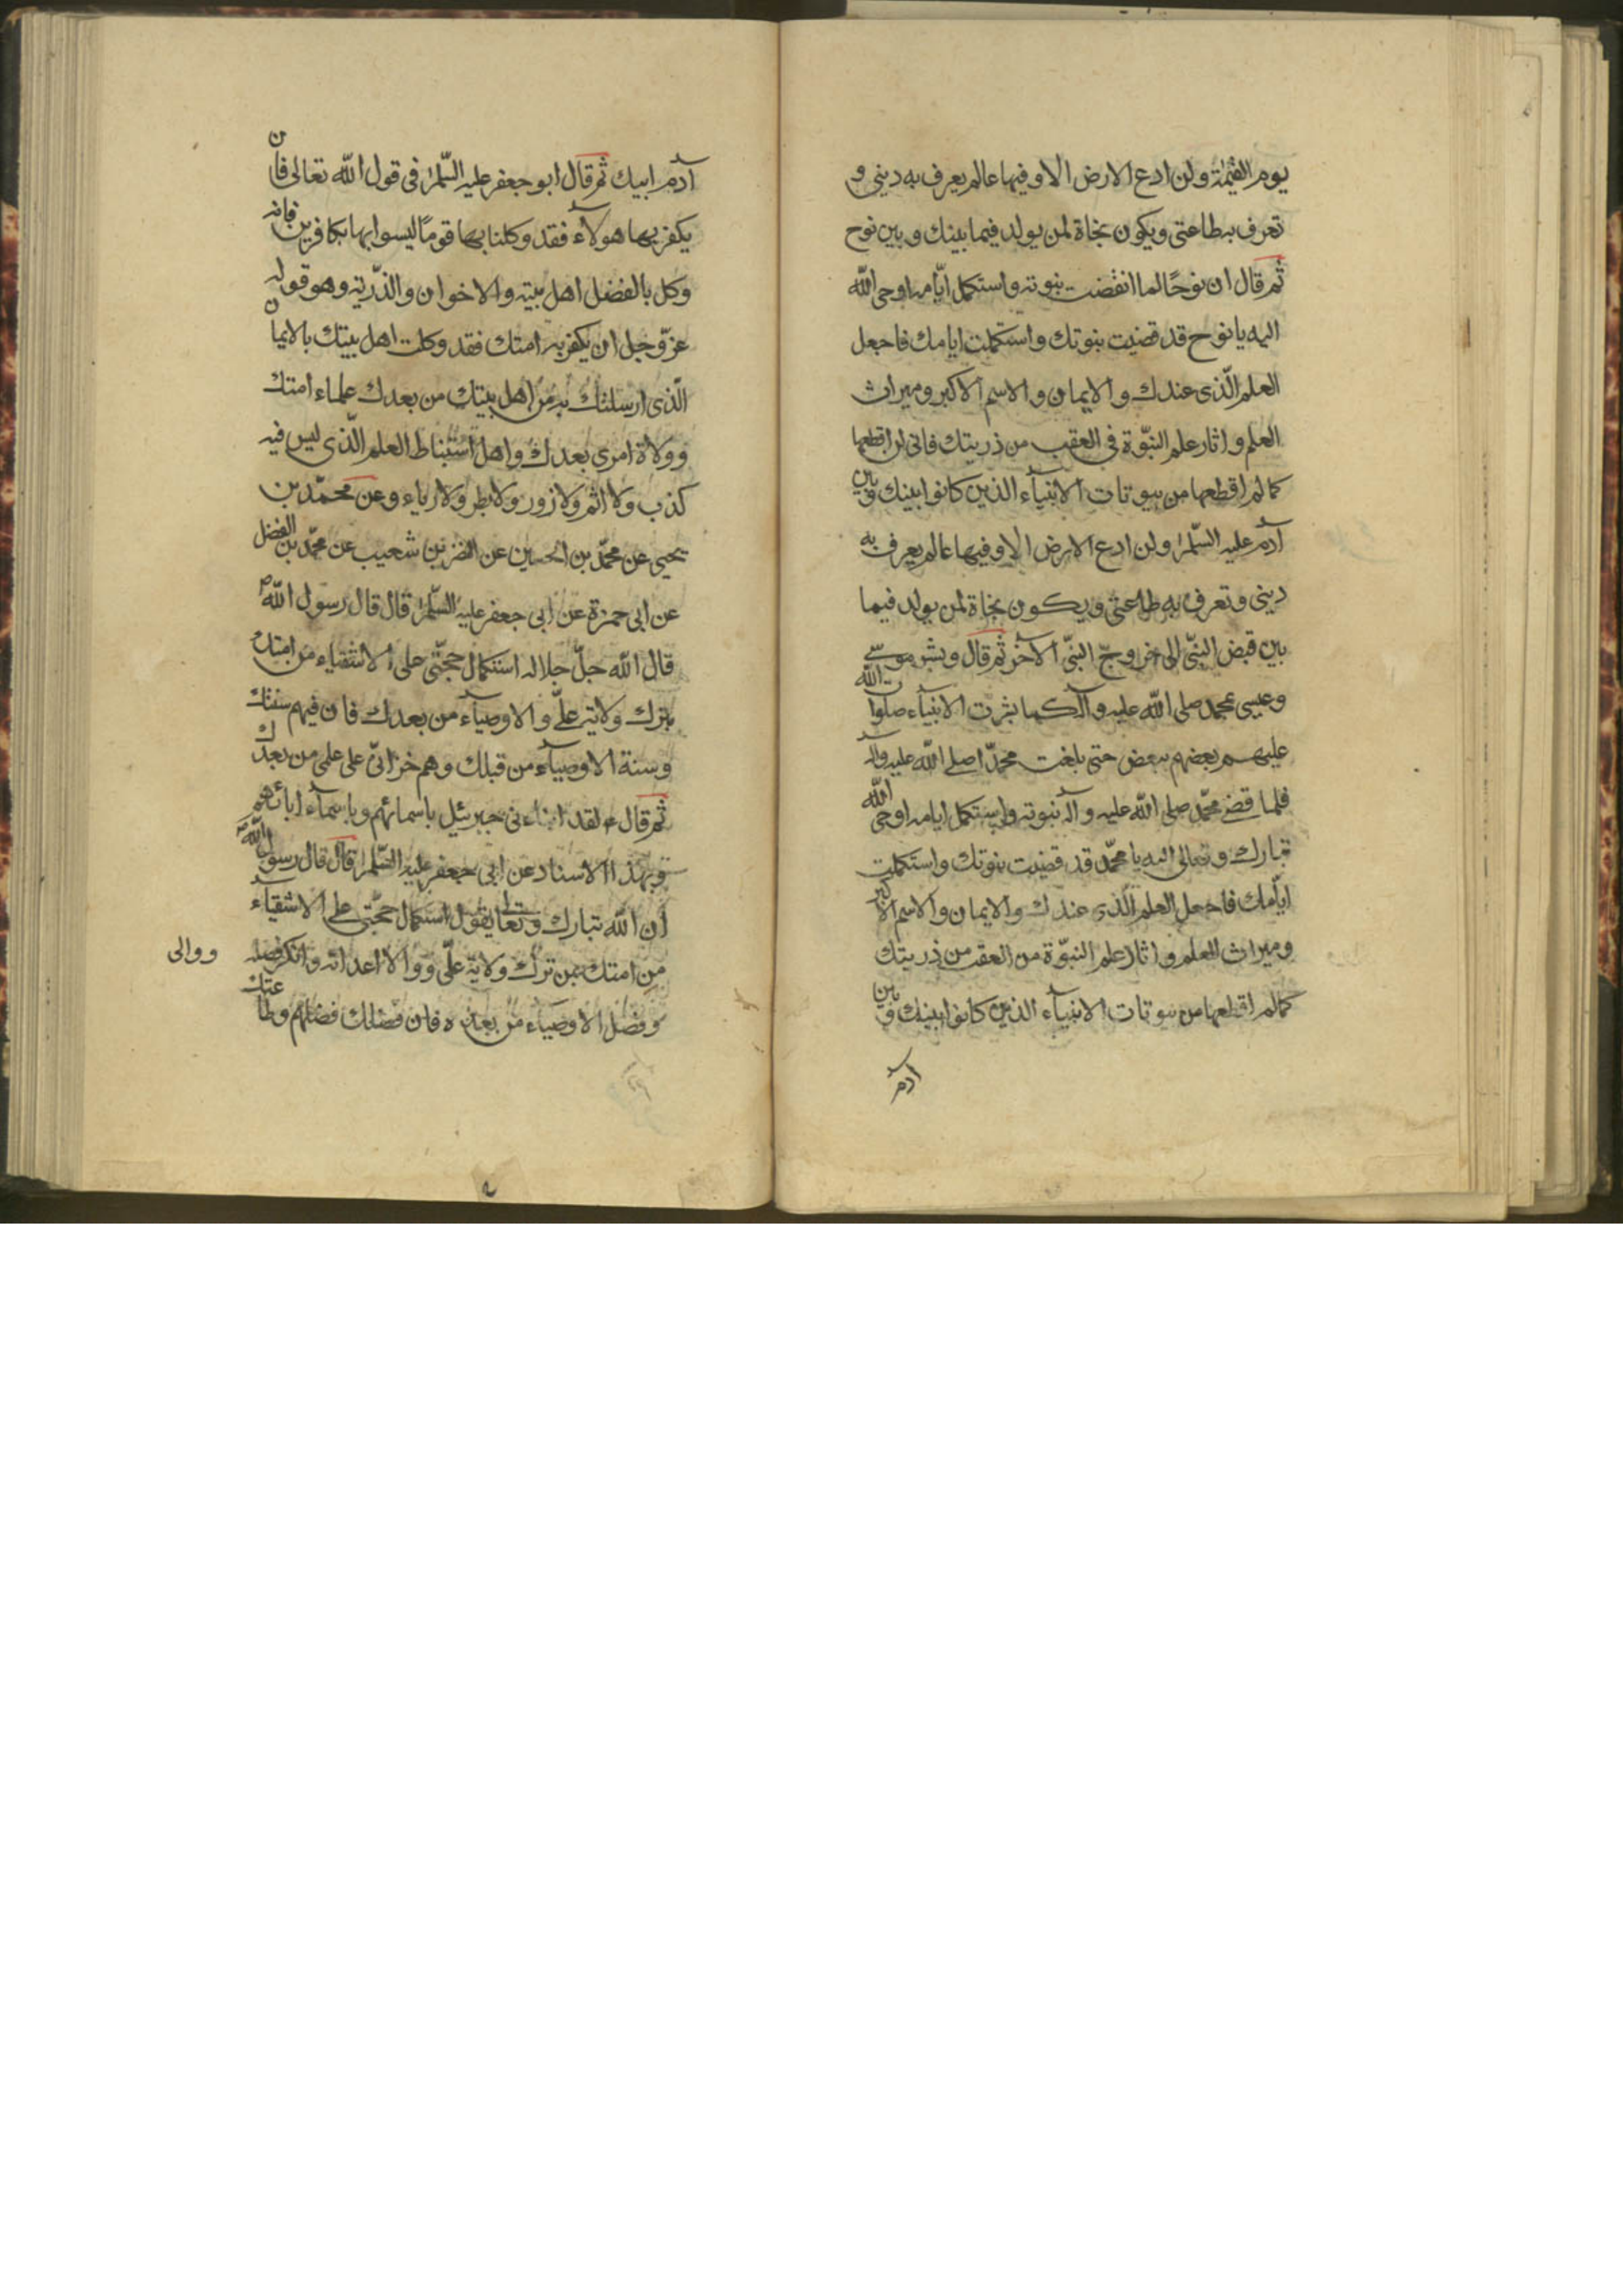 يوم القيمة ولن ادع الارض الا وفيها عالم يعرف به ديني و
تعرف به طاعتي ويكون نجاة لمن يولد فيما بينك و بين نوح
ثم قال ان نوحًا لما انقضت نبوته واستكمل ايّامه اوحى الله
اليه يا نوح قد قضيت نبوتك واستكملت ايامك فاجعل
العلم الّذى عندك و الايمان و الاسم الاكبر وميراث
العلم و اثار علم النبّوة فى العقب من ذريتك فانى لن اقطعها
كما لم اقطعها من بيوتات الانبيآء الذين كانوا بينك و بين
آدم عليه السّلم ولن ادع الارض الا وفيها عالم يعرف به
دينى وتعرف به طاعتى ويكون نجاة لمن يولد فيما
بين قبض النبّى الى خروج النبّى الآخر ثم قال وبشر موسى
وعيسى بمحمد صلى الله عليه وآله كما بشرت الانبيآء صلوات الله
عليهم بعضهم ببعض حتى بلغت محمّدا صلى الله عليه وآله
فلما قضى محمّد صلى الله عليه وآله نبوته واستكمل ايامه اوحى الله
تبارك وتعالى اليه يا محمّد قد قضيت نبوتك واستكملت
ايّامك فاجعل العلم الّذى عندك والايمان والاسم الاكبر
وميراث العلم و اثار علم النبّوة من العقب من ذريتك
كما لم اقطعها من بيوتات الانبيآء الذين كانوا بينك و بين
آدم
آدم ابيك ثم قال ابو جعفر عليه السّلم فى قول الله تعالى فان
يكفر بها هولآء فقد وكلنا بها قومًا ليسوا بها بكافرين فانه
وكل بالفضل اهل بيته والاخوان والذّرية وهو قوله
عزّ وجل ان يكفر به امتك فقد وكلت اهل بيتك بالايمان
الّذى ارسلتك به من اهل بيتك من بعدك علماء امتك
وولاة امرى بعدك واهل استنباط العلم الّذى ليس فيه
كذب ولا اثم ولا زور ولا بطر ولا رياء وعن محمّد بن
يحيى عن محمّد بن الحسين عن النضر بن شعيب عن محمّد بن الفضل
عن ابى حمزة عن ابى جعفر عليه السّلم قال قال رسول الله ص
قال الله جلّ جلاله استكمال حجّتى على الاشقياء من امتك
بترك ولاية علىّ والاوصيآء من بعدك فان فيهم سنتك
وسنة الاوصيآء من قبلك وهم خزانىّ على علمى من بعدك
ثم قال ع لقد انباءنى جبرئيل باسمائهم وباسمآء ابائهم
وبهذا الاسناد عن ابى جعفر عليه السّلم قال قال رسول الله ص
ان الله تبارك وتعالى يقول استكمال حجّتى على الاشقيآء
من امتك من ترك ولاية علىّ ووالا اعدائه وانكر فضله
ووالى
وفضل الاوصياء من بعده فان فضلك فضلهم وطاعتك